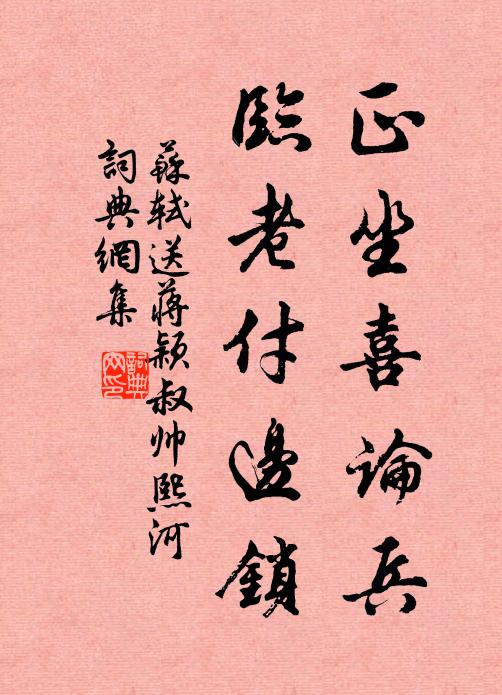 正坐喜論兵
臨老付邊鎖
蘇軾送蔣颖叔帅熙河
詞典網集
詞典网印